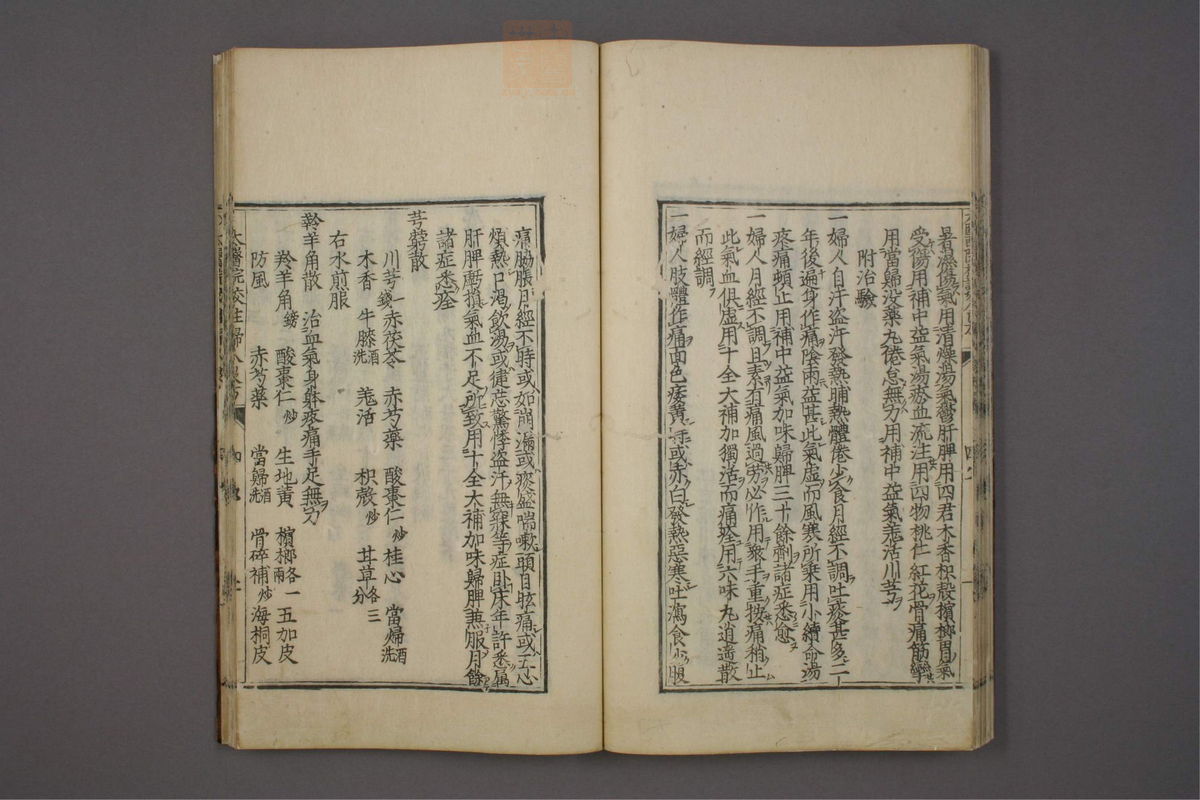 暑濕傷氣用清燥湯氣鬱肝脾用四君木香枳殼檳榔胃氣
受傷用補中益氣湯瘀血流注用四物桃仁紅花骨痛筋攣
用當歸沒藥丸倦怠無力用補中益氣羌活川芎
附治驗
一婦人自汗盜汗發熱晡熱體倦少食月經不調吐痰甚多二
年後遍身作痛陰雨益甚此氣虛而風寒所乘用小續命湯
疼痛頓止用補中益氣加味歸脾三十餘劑諸症悉愈
一婦人月經不調且素有痛風過勞必作用衆手重按痛稍止
此氣血俱虛用十全大補加獨活而痛痊用六味丸逍遙散
而經調
一婦人肢體作痛面色痿黃時或赤白發熱惡寒吐瀉食少腹
痛脇脹月經不時或如崩漏或痰盛喘嗽頭目眩痛或五心
煩熱口渴飲湯或健忘驚悸盜汗無寐等症卧牀年許悉屬
肝脾虧損氣血不足所致用十全大補加味歸脾兼服月餘
諸症悉痊
芎藭散
川芎一錢 赤茯苓 赤芍藥 酸棗仁炒 桂心 當歸酒洗
木香 牛膝酒洗 羌活 枳殼炒 甘草各三分
右水煎服
羚羊角散 治血氣身體疼痛手足無力
羚羊角鎊 酸棗仁炒 生地黃 檳榔各一兩 五加皮
防風 赤芍藥 當歸酒洗 骨碎補炒 海桐皮
太醫院校註婦人良方 四